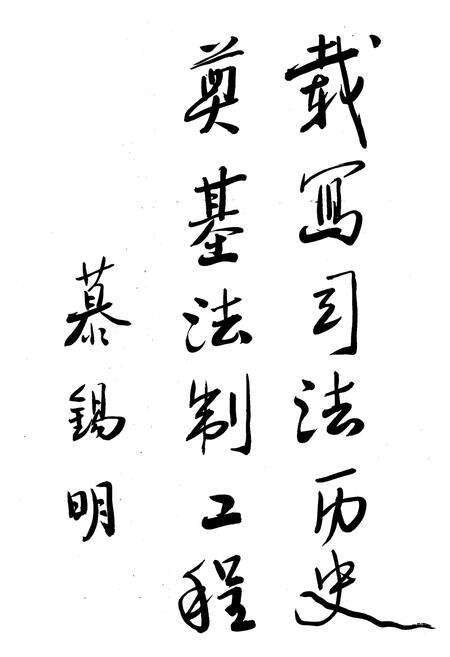 载寫司法历史
奠基法制工程
慕锡明